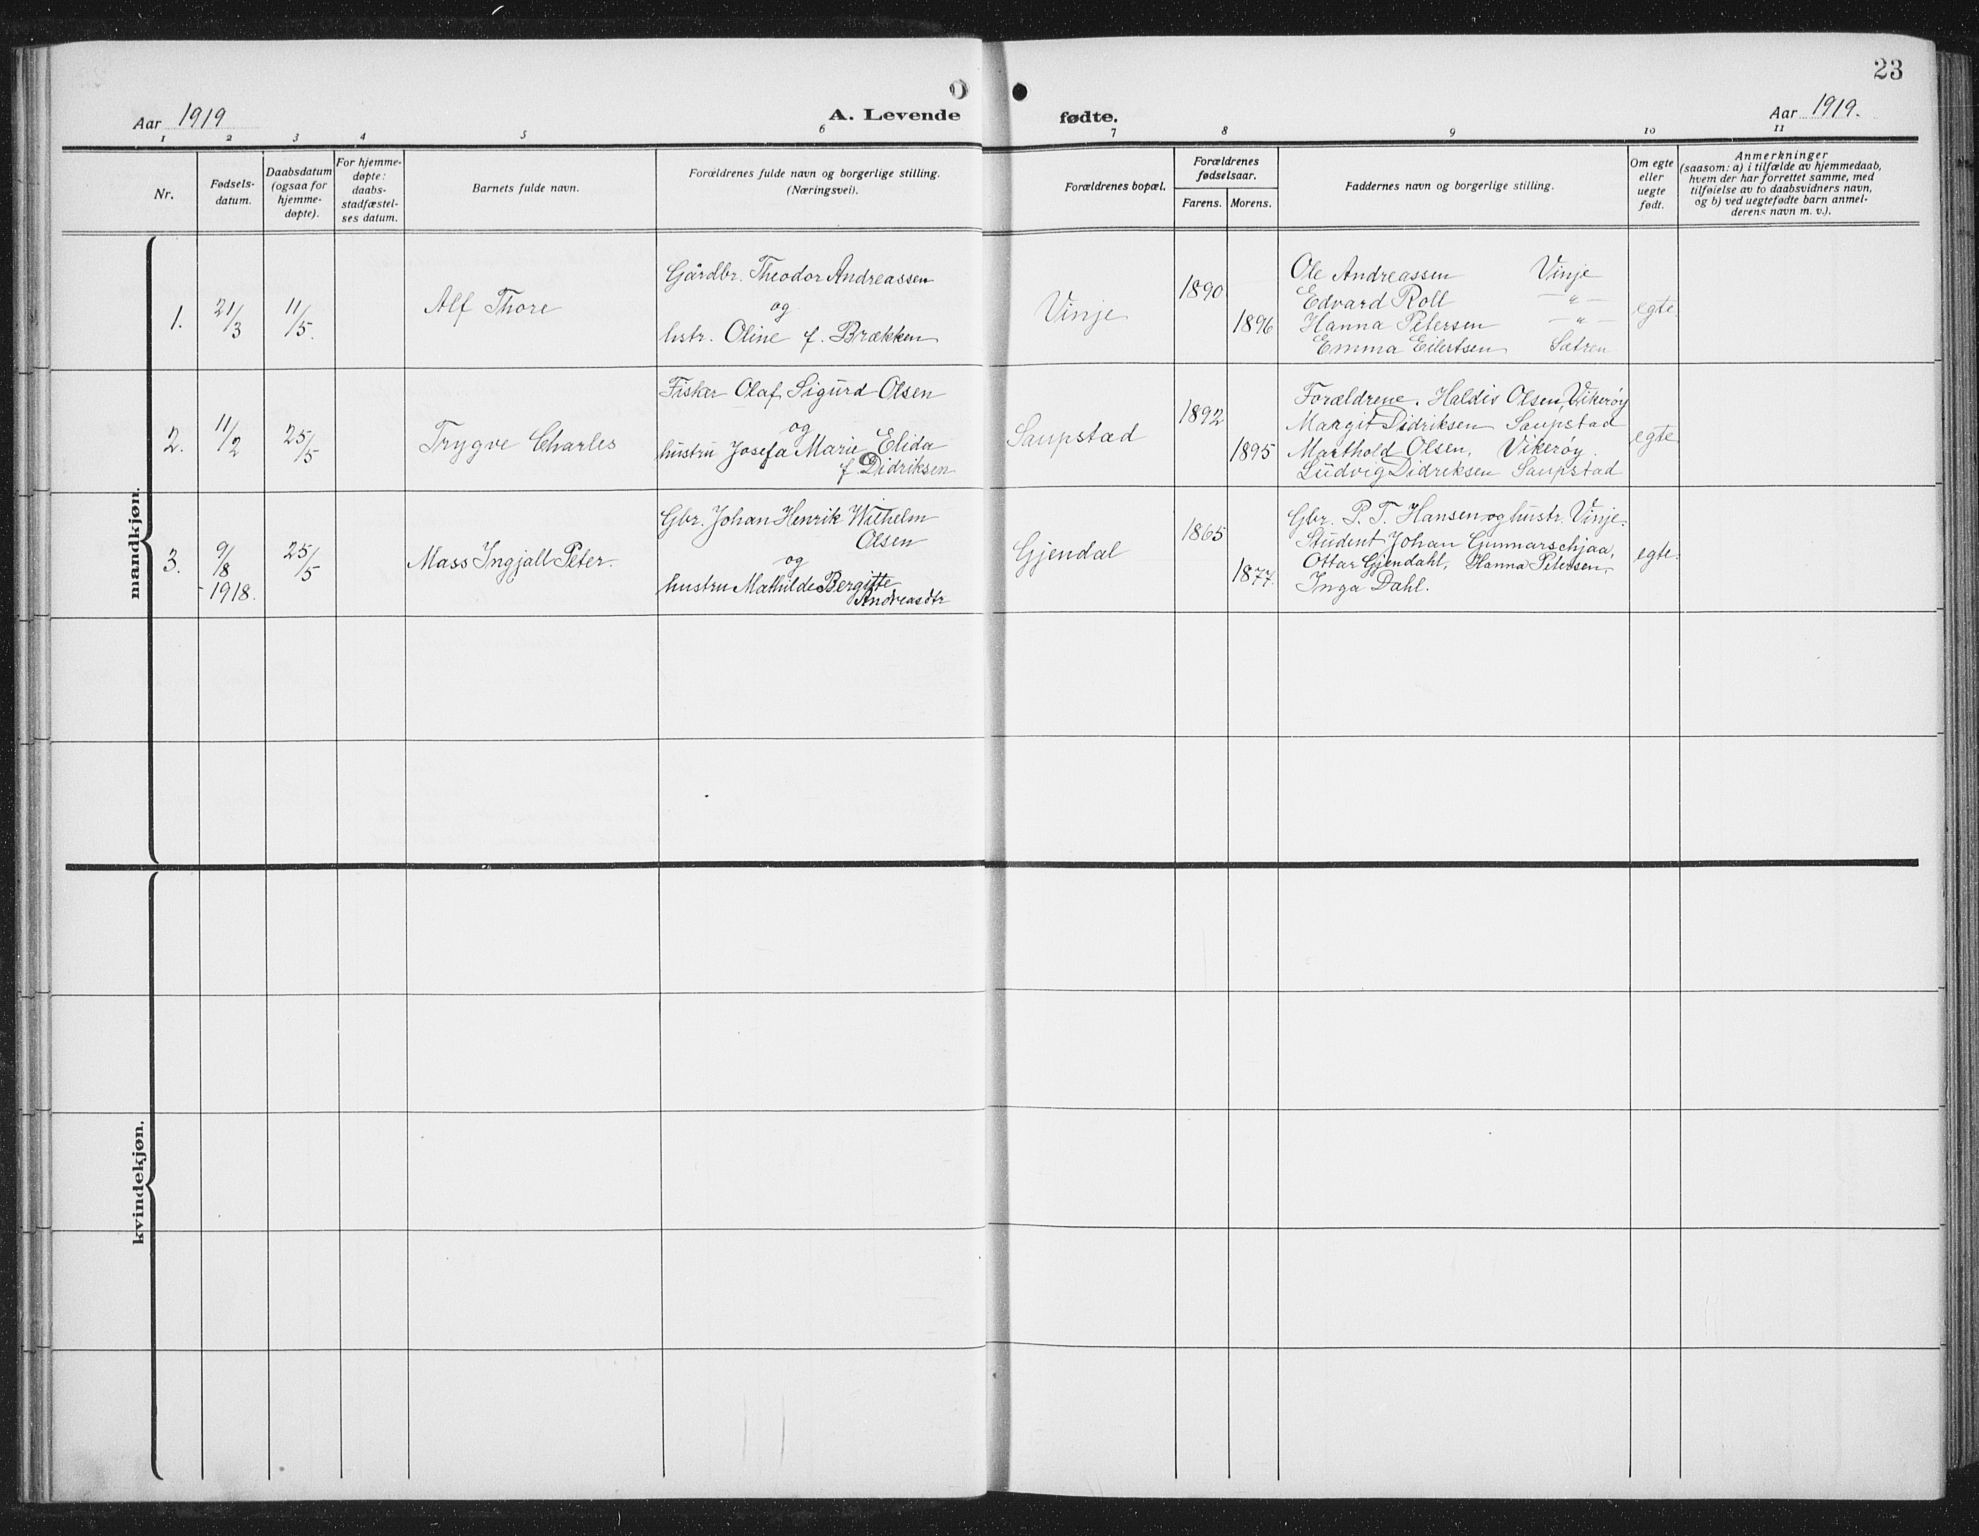 23
Aar 1919
A. Levende fødte.
Aar 1919.
1 2 3 4 5 6 7 8 9 10 11
Nr.
Fødsels-
datum.
Daabsdatum
(ogsaa for
hjemme-
døpte).
For hjemme-
døpte:
daabs-
stadfæstel-
ses datum.
Barnets fulde navn.
Forældrenes fulde navn og borgerlige stilling.
(Næringsvei).
Forældrenes bopæl.
Forældrenes
fødselsaar.
Farens. Morens.
Faddernes navn og borgerlige stilling.
Om egte
eller
uegte
født.
Anmerkninger
(saasom: a) i tilfælde av hjemmedaab,
hvem der har forrettet samme, med
tilføielse av to daabsvidners navn,
og b) ved uegtefødte barn anmel-
derens navn m. v.).
mandkjøn.
1.
21/3
11/5.
Alf Thore
Gårdbr. Theodor Andreassen
og
hstr. Oline f. Brækken
Vinje
1890
1896
Ole Andreassen Vinje
Edvard Roll — " —
Hanna Petersen — " —
Emma Eilertsen Sætren
egte
2.
11/2
25/5
Trygve Charles
Fisker Olaf Sigurd Olsen
og
hustru Josefa Marie Elida
f. Didriksen
Saupstad
1892
1895
Forældrene. Haldis Olsen, Vikerøy
Margit Didriksen Saupstad
Marthold Olsen, Vikerøy.
Ludvig Didriksen Saupstad
egte
3.
9/8
- 1918.
25/5
Mass Ingjalt Peter.
Gbr. Johan Henrik Wilhelm
Olsen
og
hustru Mathilde Bergitte
Andreasdtr
Gjendal
1865
1877.
Gbr. P. T. Hansen og hustr. Vinje.
Student Johan Gunnarschjaa,
Ottar Gjendahl, Hanna Petersen,
Inga Dahl.
egte.
kvindekjøn.